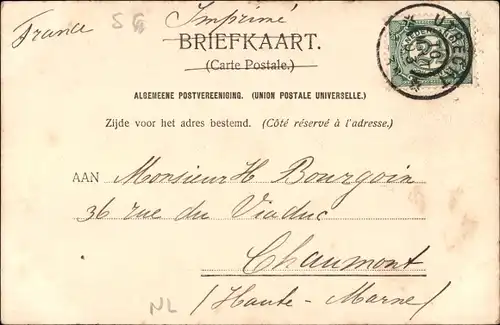 France SG Imprimé
BRIEFKAART.
(Carte Postale.)
ALGEMEENE POSTVEREENIGING. (UNION POSTALE UNIVERSELLE.)
Zijde voor het adres bestemd. (Côté réservé à l'adresse.)
AAN Monsieur H Bourgoin
36 rue du Viaduc
Chaumont
(Haute-Marne)
NL
UTRECHT